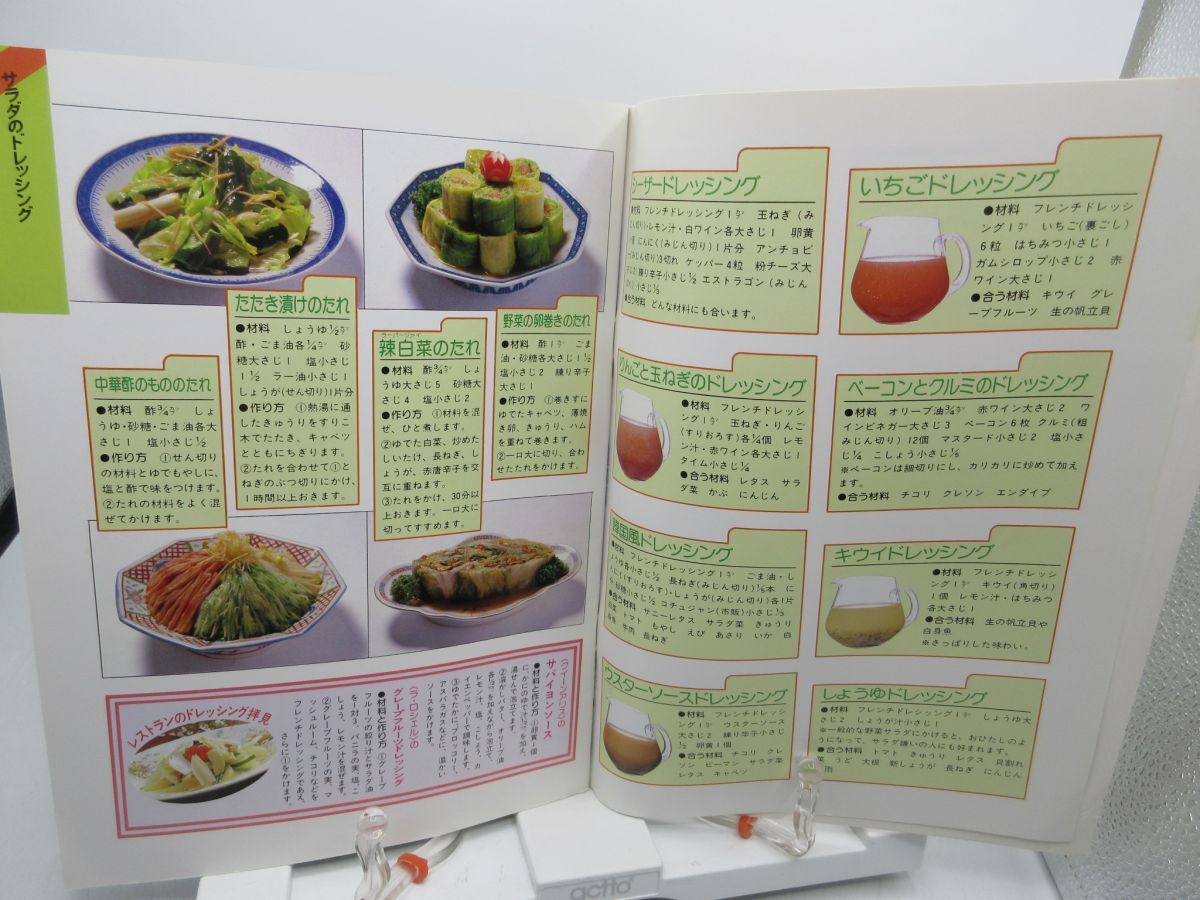 サラダのドレッシング
たたき漬けのたれ
●材料 しょうゆ½カップ
酢・ごま油各¼カップ 砂
糖大さじ1 塩小さじ
1½ ラー油小さじ1
しょうが(せん切り)1片分
●作り方 ①熱湯に通
したきゅうりをすりこ
木でたたき、キャベツ
とともにちぎります。
②たれを合わせて①と
ねぎのぶつ切りにかけ、
1時間以上おきます。
中華酢のもののたれ
●材料 酢¾カップ しょ
うゆ・砂糖・ごま油各大
さじ1 塩小さじ½
●作り方 ①せん切り
の材料とゆでもやしに、
塩と酢で味をつけます。
②たれの材料をよく混
ぜてかけます。
ラーパーツァイ
辣白菜のたれ
●材料 酢¾カップ しょ
うゆ大さじ5 砂糖大
さじ4 塩小さじ2
●作り方 ①材料を混
ぜ、ひと煮します。
②ゆでた白菜、炒めた
しいたけ、長ねぎ、し
ょうが、赤唐辛子を交
互に重ねます。
③たれをかけ、30分以
上おきます。一口大に
切ってすすめます。
野菜の卵巻きのたれ
●材料 酢1カップ ごま
油・砂糖各大さじ1½
塩小さじ2 練り辛子
大さじ1
●作り方 ①巻きすに
ゆでたキャベツ、薄焼
き卵、きゅうり、ハム
を重ねて巻きます。
②一口大に切り、合わ
せたたれをかけます。
レストランのドレッシング拝見
〈クイーンアリス〉の
サバイヨンソース
●材料と作り方 ①卵黄1個
に、かにのゆで汁½カップを加え、
湯せんで泡立てます。
②溶かしバター、オリーブ油
各½カップを加えながら泡立て、
レモン汁、塩、こしょう、カ
イエンペッパーで調味します。
③ゆでたかに、ブロッコリー、
アスパラガスなどに、温かい
ソースをかけます。
〈ラ・ロシェル〉の
グレープフルーツドレッシング
●材料と作り方 ①グレープ
フルーツの絞り汁とサラダ油
を1対3、バニラの実、塩、こ
しょう、レモン汁を混ぜます。
②グレープフルーツの実、マ
ッシュルーム、チコリなどを
フレンチドレッシングであえ、
さらに①をかけます。
シーザードレッシング
●材料 フレンチドレッシング1カップ 玉ねぎ(み
じん切り)・レモン汁・白ワイン各大さじ1 卵黄
1個 にんにく(みじん切り)1片分 アンチョビ
ー(みじん切り)3切れ ケッパー4粒 粉チーズ大
さじ2 練り辛子小さじ½ エストラゴン(みじん
切り)小さじ½
●合う材料 どんな材料にも合います。
いちごドレッシング
●材料 フレンチドレッ
シング1カップ いちご(裏ごし)
6粒 はちみつ小さじ1
ガムシロップ小さじ2 赤
ワイン大さじ1
●合う材料 キウイ グレ
ープフルーツ 生の帆立貝
りんごと玉ねぎのドレッシング
●材料 フレンチドレッシ
ング1カップ 玉ねぎ・りんご
(すりおろす)各¼個 レモ
ン汁・赤ワイン各大さじ1
タイム小さじ¼
●合う材料 レタス サラ
ダ菜 かぶ にんじん
ベーコンとクルミのドレッシング
●材料 オリーブ油¾カップ 赤ワイン大さじ2 ワ
インビネガー大さじ3 ベーコン6枚 クルミ(粗
みじん切り)12個 マスタード小さじ2 塩小さ
じ¼ こしょう小さじ⅛
※ベーコンは細切りにし、カリカリに炒めて加え
ます。
●合う材料 チコリ クレソン エンダイブ
韓国風ドレッシング
●材料 フレンチドレッシング1カップ ごま油・し
ょうゆ各小さじ½ 長ねぎ(みじん切り)⅓本 に
んにく(すりおろす)・しょうが(みじん切り)各1片
分 砂糖小さじ½ コチュジャン(市販)小さじ½
●合う材料 サニーレタス サラダ菜 きゅうり
白菜 トマト もやし えび あさり いか 白
身魚 牛肉 長ねぎ
キウイドレッシング
●材料 フレンチドレッシ
ング1カップ キウイ(角切り)
1個 レモン汁・はちみつ
各大さじ1
●合う材料 生の帆立貝や
白身魚
※さっぱりした味わい。
ウスターソースドレッシング
●材料 フレンチドレッシ
ング1カップ ウスターソース
大さじ2 練り辛子小さじ
½ 卵黄1個
●合う材料 チコリ クレ
ソン ピーマン サラダ菜
レタス キャベツ
しょうゆドレッシング
●材料 フレンチドレッシング1カップ しょうゆ大
さじ2 しょうが汁小さじ1
※一般的な野菜サラダにかけると、おひたしのよ
うになって、サラダ嫌いの人にも好まれます。
●合う材料 トマト きゅうり レタス 貝割れ
菜 うど 大根 新しょうが 長ねぎ にんじん
actto